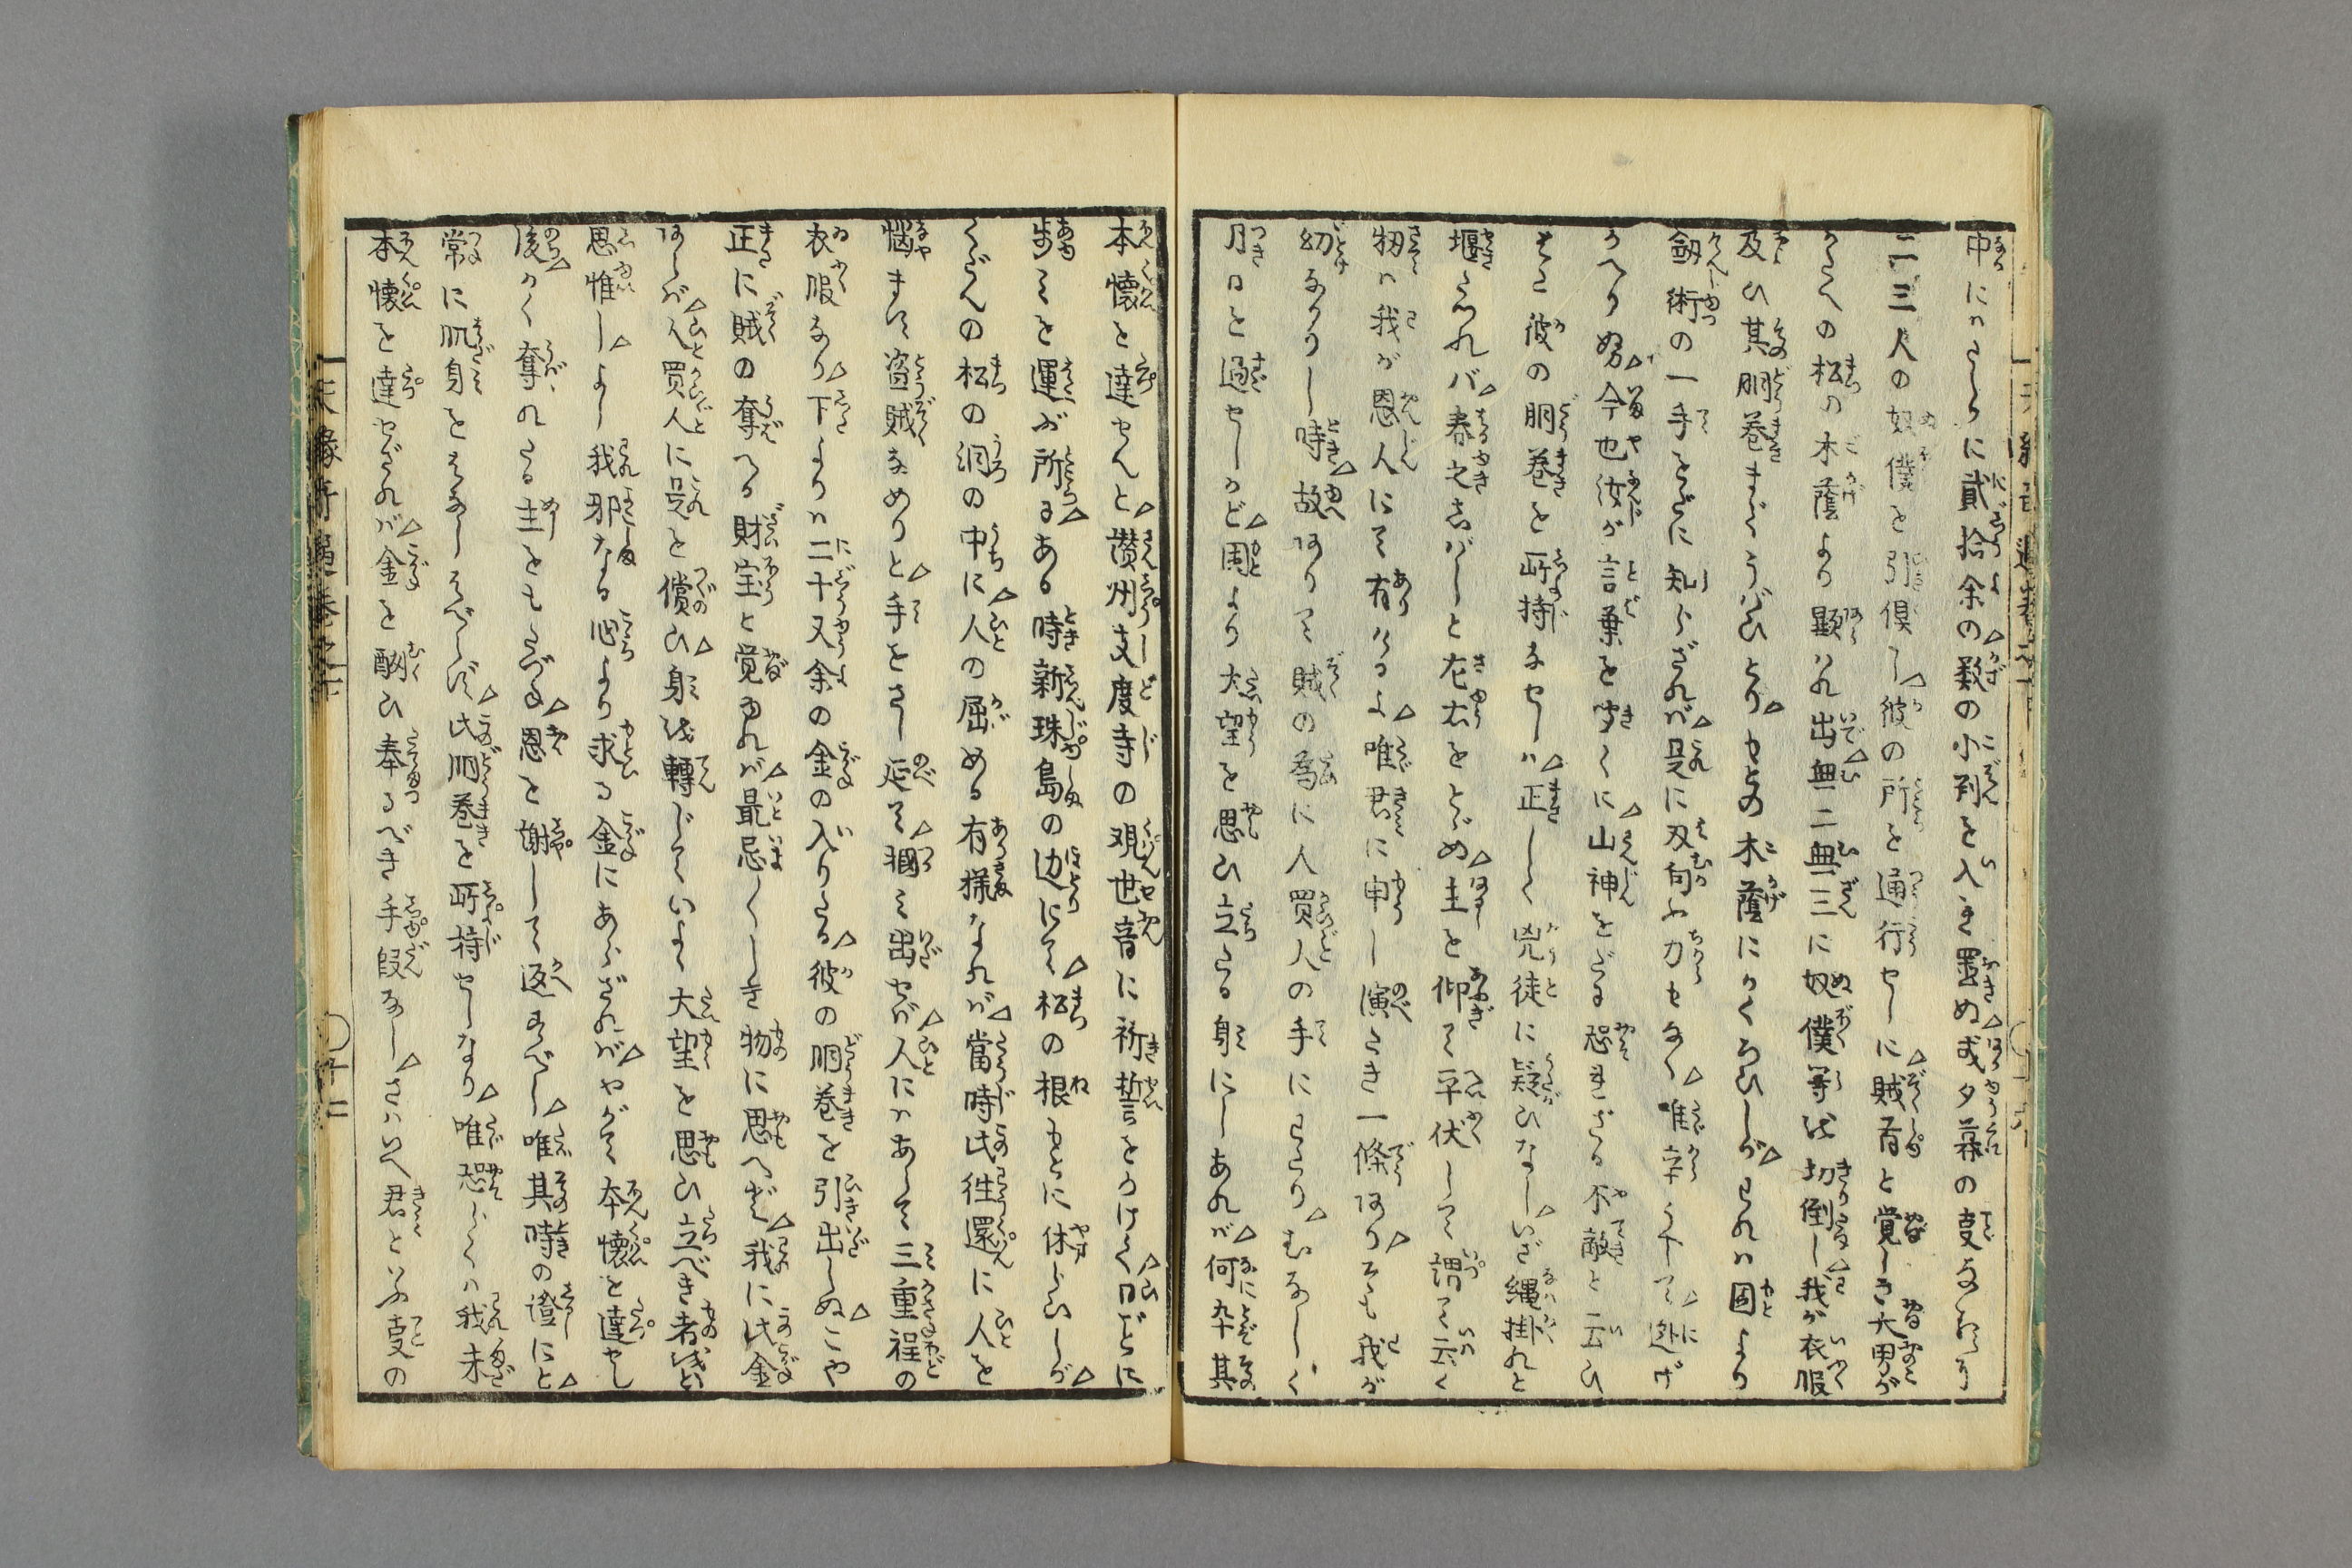 中にハさらに貳拾余の数の小判を入き置ぬ或夕暮の叓なりき
二三人の奴僕を引倶し彼の所を通行せしに賊有と覚しき大男が
かたへの松の木蔭より顕れ出無二無三に奴僕等を切倒し我が衣服
及ひ其胴巻までうばひとりもとの木蔭にかくろひしがわれハ固より
劔術の一手をだに知らざれバ是に刄向ふ力もなく唯辛うじて迯げ
かへりぬ今也汝が言葉を聞くに山神をだに恐れざる不敵と云ひ
まさに彼の胴巻を所持なせしハ正しく兇徒に疑ひなしいざ縄掛れと
堰たつれバ春之志ばしと左右をとゞめ主を仰て平伏して謂て云く
物ハ我が恩人にて有けるよ唯君に申し演たき一條ありそも我が
幼なかりし時故ありて賊の為に人買人の手にわたりむなしく
月日を過せしかど固より大望を思ひ立たる身にしあれバ何卒其
本懐を達せんと讃州支度寺の観世音に祈誓をかけて日ごとに
歩ミを運ぶ所にある時新珠島の辺にて松の根もとに休らひしが
くだんの松の洞の中に人の屈める有様なれバ當時此往還に人を
悩ます盗賊なめりと手をさし延て掴ミ出せバ人にハあらで三重程の
衣服なり下よりハ二十又余の金の入りたる彼の胴巻を引出しぬこや
正に賊の奪へる財宝と覚ゆれバ最忌〱しき物に思へど我に此金
あらバ人買人に是を償ひ身を轉じていよ〱大望を思ひ立べき者をと
思惟しよし我邪なる心より求る金にあらざれバやがて本懐を達せし
後かく奪れたる主をもたづね恩を謝して返すべし唯其時の證にと
常に肌身をはなしはべらず此胴巻を所持せしなり唯恐らくハ我未
本懐を達せざれバ金を酬ひ奉るべき手段なしさハいへ君といふ叓の